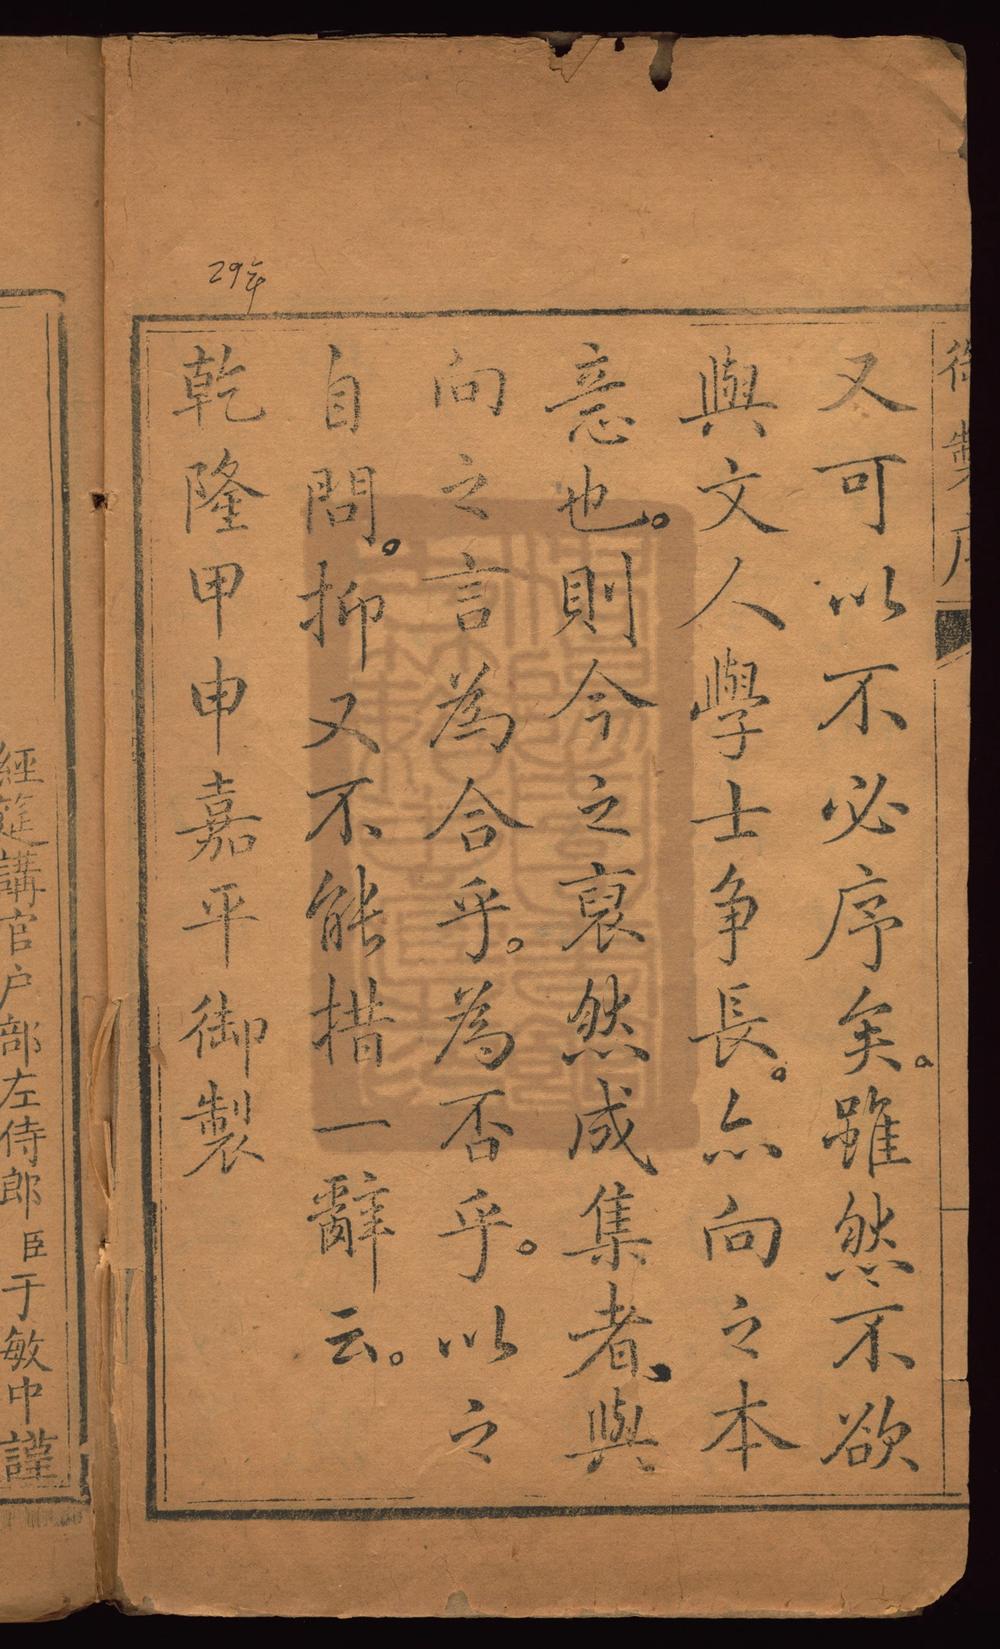 御製序
又可以不必序矣。雖然不欲
與文人學士爭長。亦向之本
意也。則今之裒然成集者、與
向之言為合乎。為否乎。以之
自問。抑又不能措一辭云。
乾隆甲申嘉平御製
29年
經筵講官戶部左侍郎臣于敏中謹